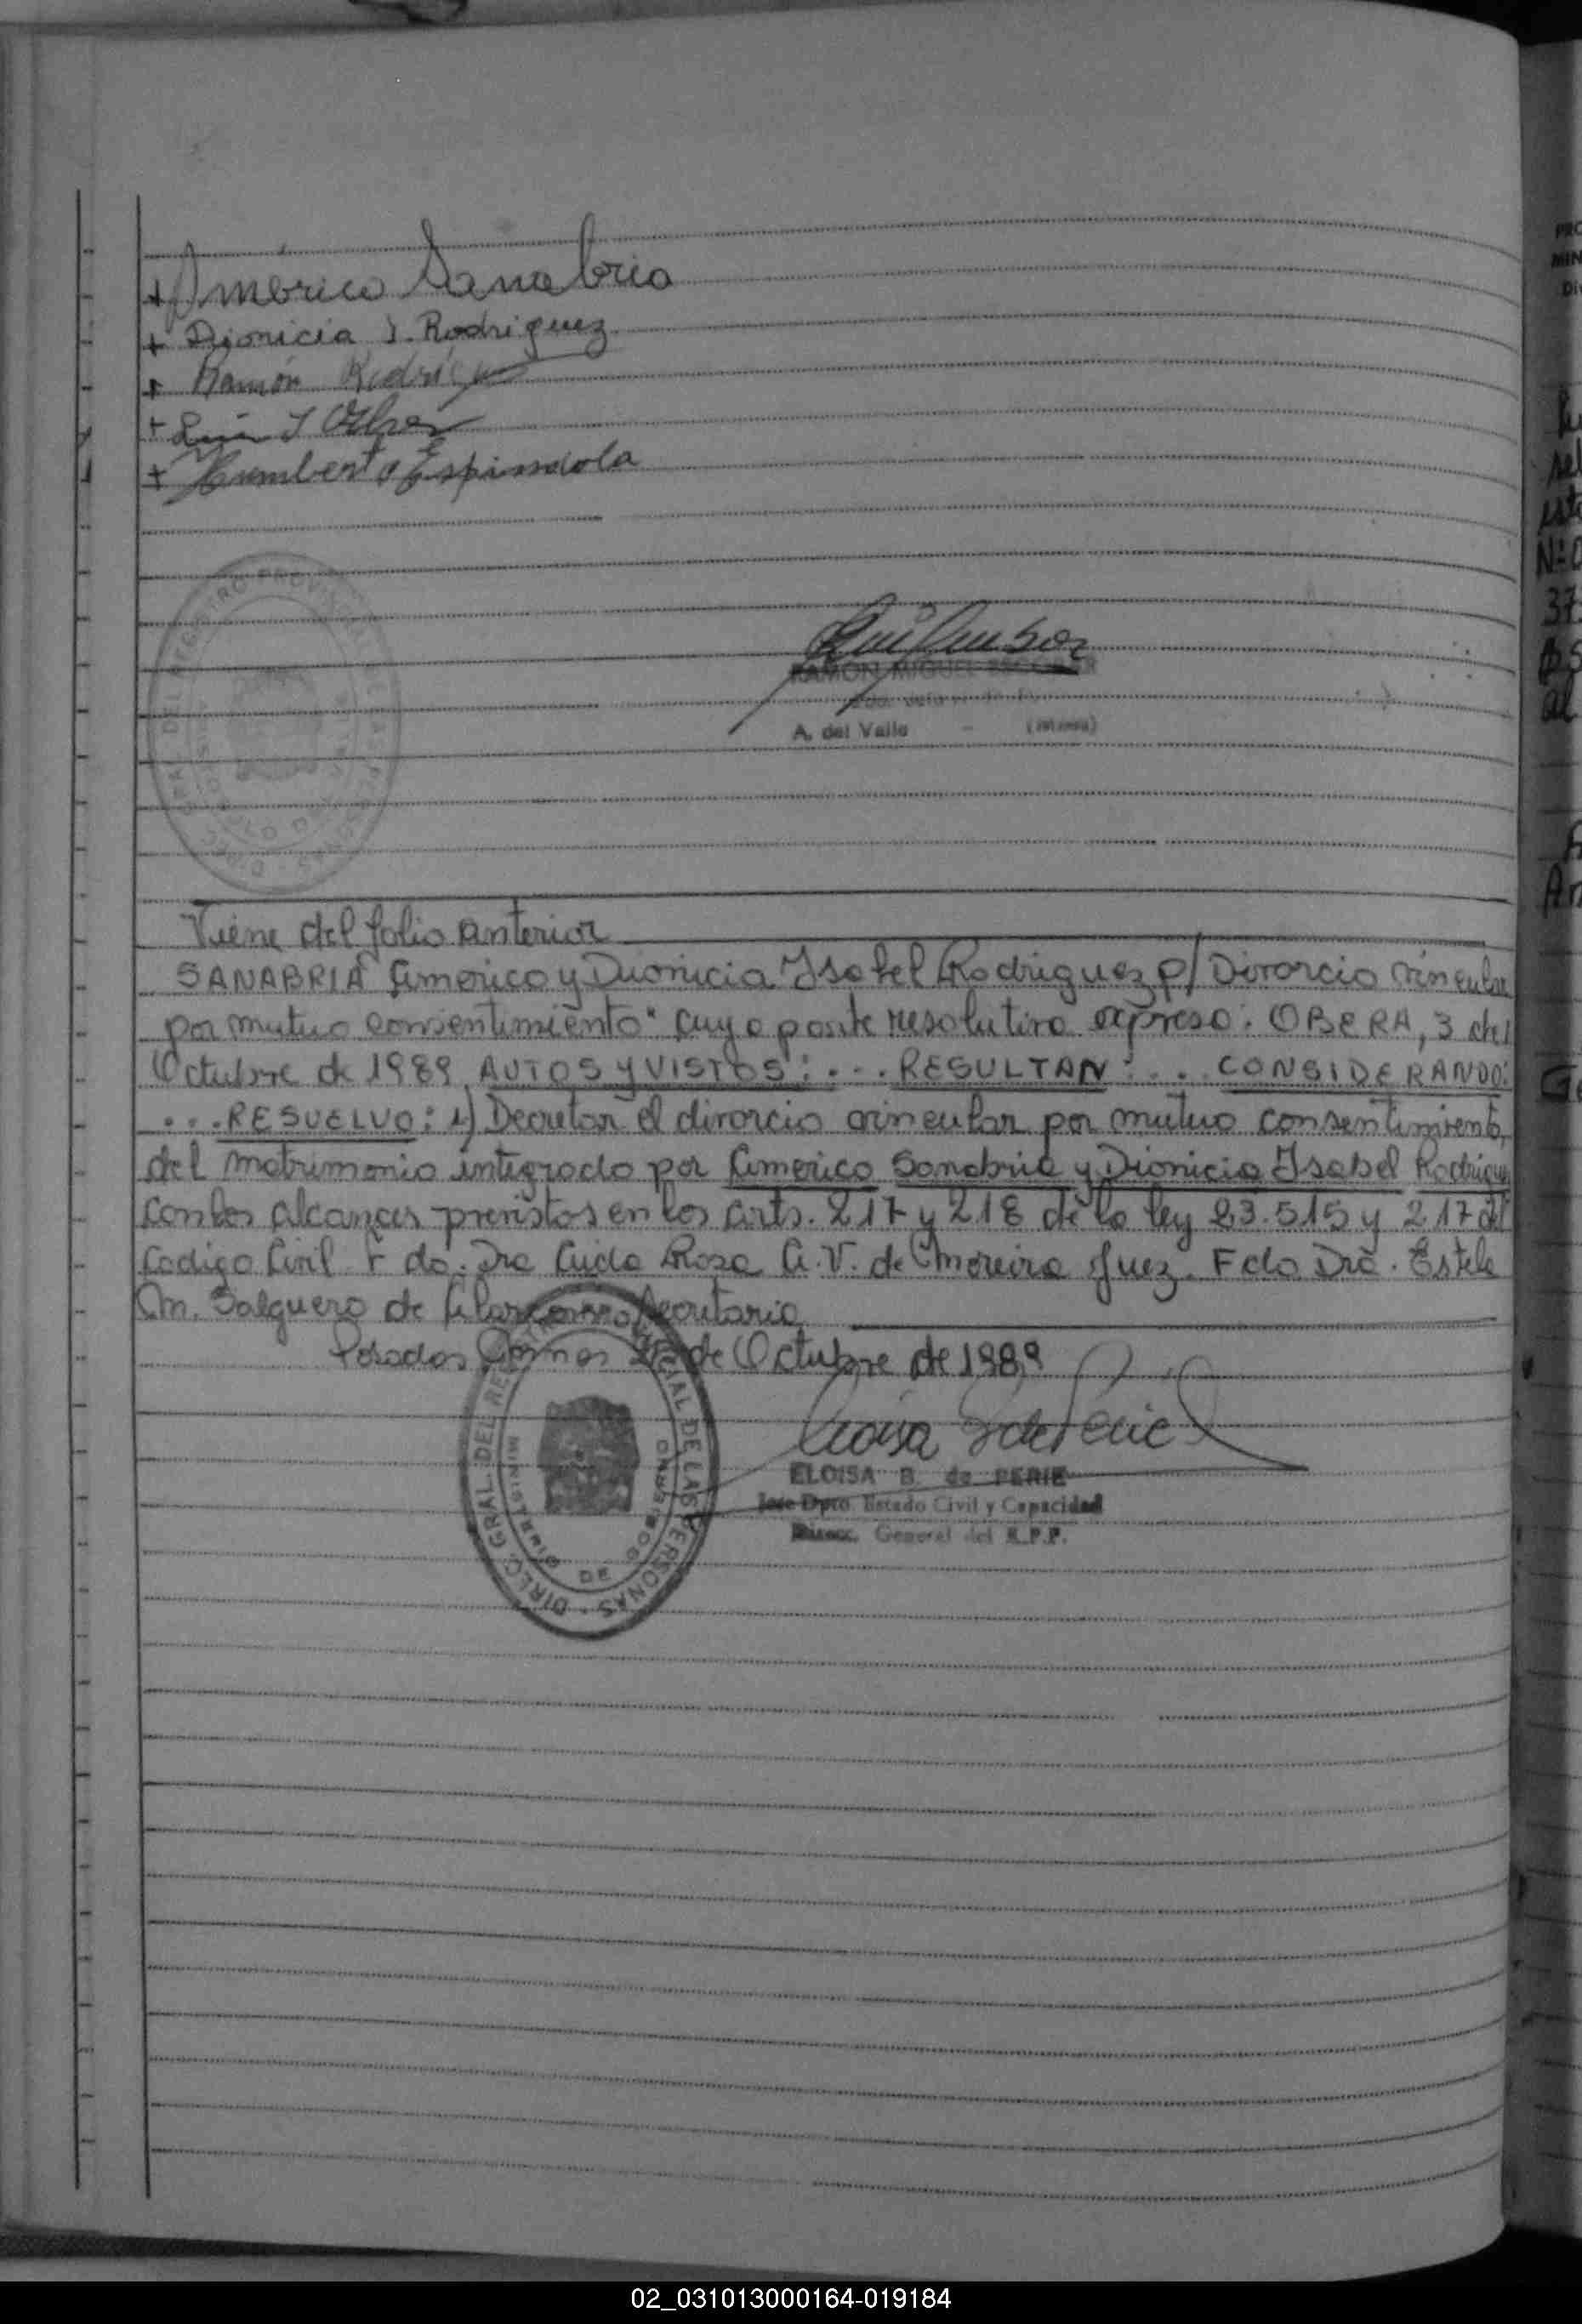 + Américo Sanabria
+ Dionicia I. Rodriguez
+ Ramón Rodríguez
+
+ Humberto Espindola
RAMON MIGUEL
A. del Valle - (Misiones)
Viene del folio anterior
SANABRIA Americo y Dionicia Isabel Rodriguez p/ Divorcio vincular
por mutuo consentimiento" cuya parte resolutiva expresa: OBERA, 3 de
Octubre de 1989 AUTOS Y VISTOS: ... RESULTAN: ... CONSIDERANDO:
... RESUELVO: 1) Decretar el divorcio vincular por mutuo consentimiento,
del matrimonio integrado por Americo Sanabria y Dionicia Isabel Rodriguez
con los alcances previstos en los arts. 217 y 218 de la ley 23.515 y 217 del
Codigo Civil. Fdo. Dra Aida Rosa A. V. de Moreira Juez. Fdo Dra. Estela
M. Salguero de Alarcon Secretaria
Posadas Misiones de Octubre de 1989
DIREC. GRAL. DEL REGISTRO PROVINCIAL DE LAS PERSONAS
MINISTERIO DE GOBIERNO
ELOISA B. de PERIE
Jefe Dpto. Estado Civil y Capacidad
Direcc. General del R.P.P.
02_031013000164-019184